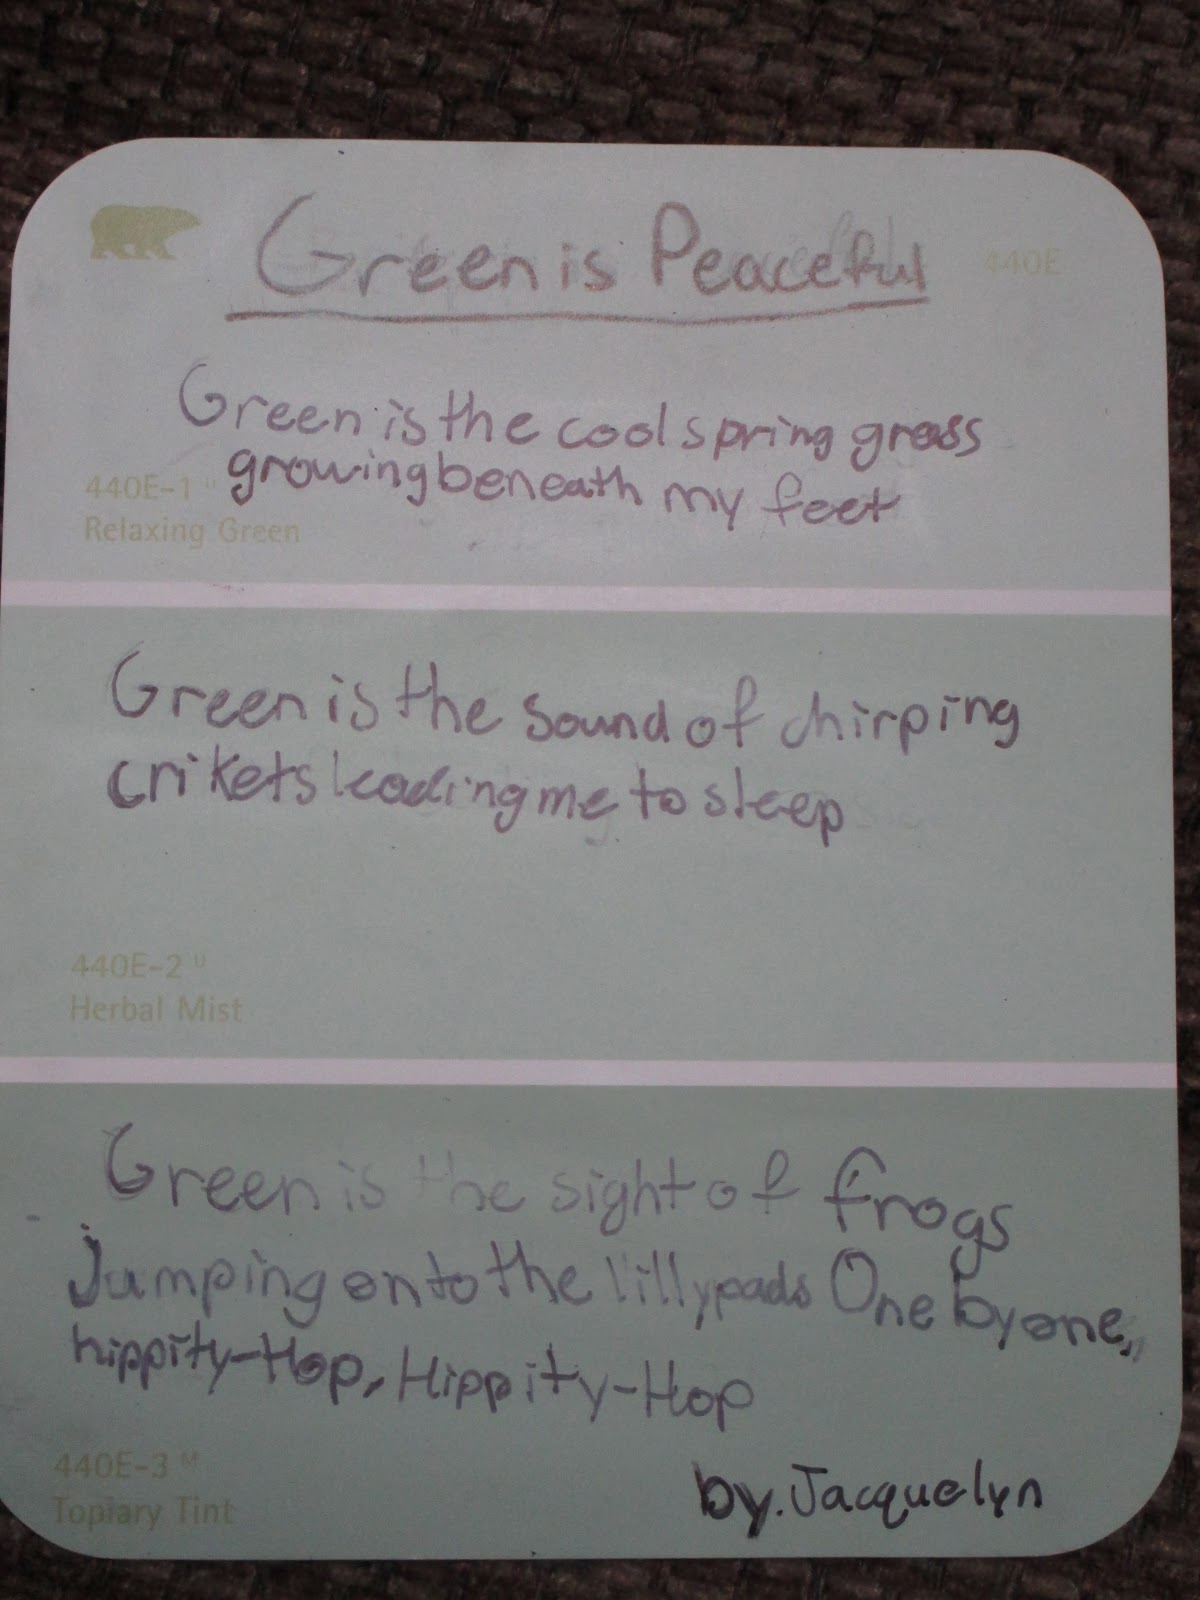 Green is Peaceful
440E
Green is the cool spring grass
growing beneath my feet
440E-1 U
Relaxing Green
Green is the sound of chirping
crikets leading me to sleep
440E-2 U
Herbal Mist
Green is the sight of frogs
Jumping onto the lillypads One by one,,
hippity-Hop, Hippity-Hop
440E-3 M
Topiary Tint
by. Jacquelyn